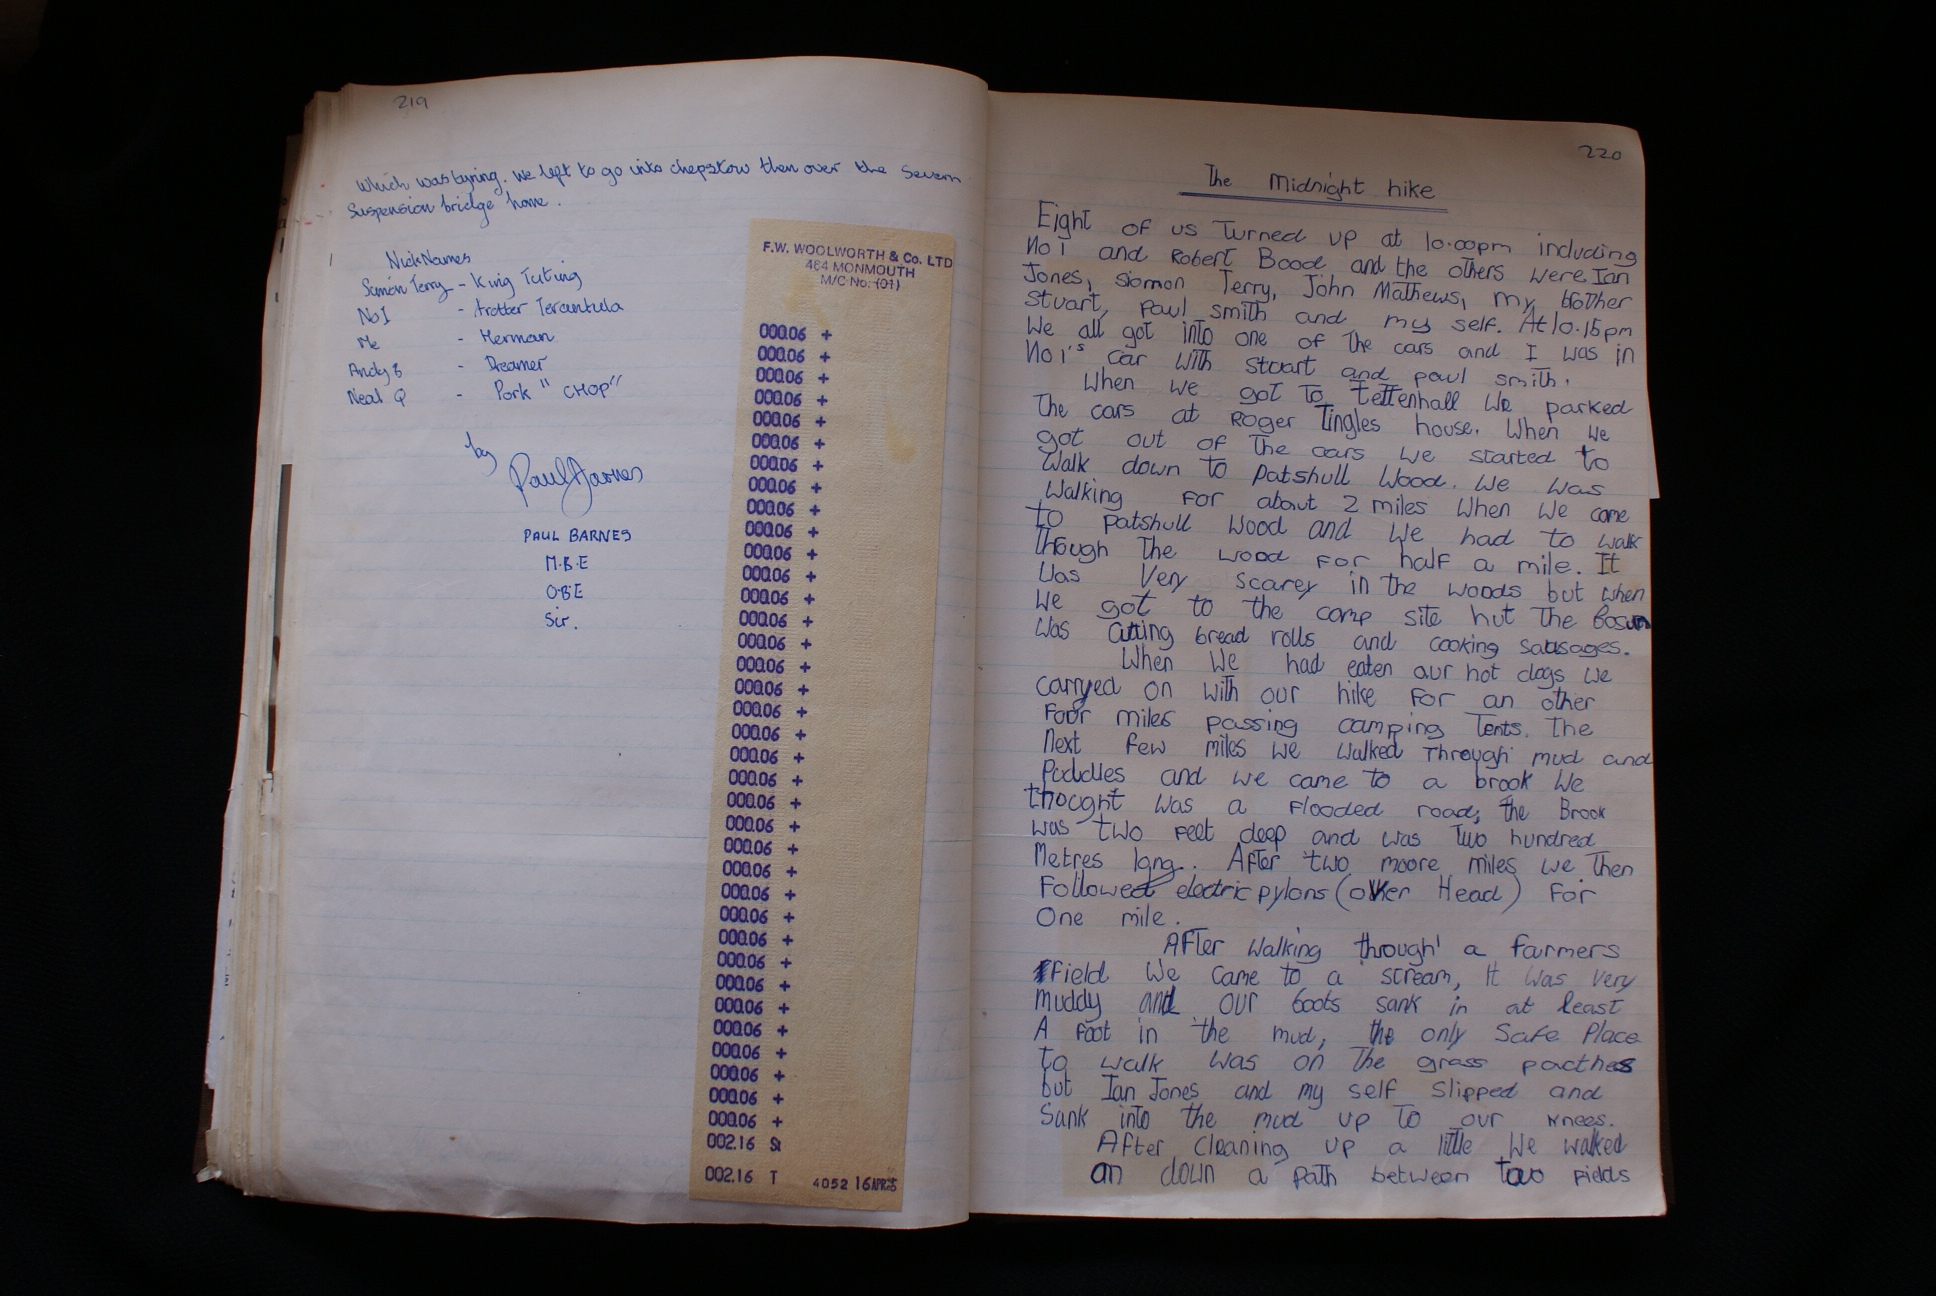 219
Which was byring. We left to go into chepstow then over the Severn
Suspension bridge home.
NickNames
Simon Terry - King Tuting
No I - trotter Terantula
Me - Herman
Andy B - Dreamer
Neal Q - Pork "CHOP"
by
Paul Barnes
PAUL BARNES
M.B.E
O.B.E
Sir.
F.W. WOOLWORTH & Co. LTD
484 MONMOUTH
M/C No. (01)
000.06 +
000.06 +
000.06 +
000.06 +
000.06 +
000.06 +
000.06 +
000.06 +
000.06 +
000.06 +
000.06 +
000.06 +
000.06 +
000.06 +
000.06 +
000.06 +
000.06 +
000.06 +
000.06 +
000.06 +
000.06 +
000.06 +
000.06 +
000.06 +
000.06 +
000.06 +
000.06 +
000.06 +
000.06 +
000.06 +
000.06 +
000.06 +
000.06 +
000.06 +
000.06 +
000.06 +
002.16 St
002.16 T 4052 16APR
220
The Midnight hike
Eight of us Turned up at 10.00pm including
No 1 and Robert Bood and the others were Ian
Jones, Siomon Terry, John Mathews, my brother
Stuart, Paul smith and my self. At 10.15pm
We all got into one of the cars and I was in
No 1's car with stuart and paul smith.
When we got to Tettenhall We parked
The cars at Roger Tingles house. When we
got out of the cars we started to
Walk down to Patshull Wood. We was
Walking for about 2 miles When we came
to patshull wood and We had to walk
though the wood for half a mile. It
Was Very scarey in the woods but when
We got to the camp site hut the Bosun
Was Cutting bread rolls and cooking sausages.
When We had eaten our hot dogs we
carryed on with our hike for an other
Foor miles passing camping Tents. The
Next few miles we walked Through mud and
Puddles and we came to a brook We
thought was a flooded road, the Brook
was two feet deep and was Two hundred
Metres long. After two moore miles we then
followed electric pylons (over Head) for
One mile.
After walking through a farmers
Field We came to a stream, It was very
muddy and our boots sank in at least
A foot in the mud, the only Safe Place
to walk was on the grass pacthes
but Ian Jones and my self Slipped and
Sank into the mud up to our knees.
After cleaning up a little We walked
on down a path between two fields